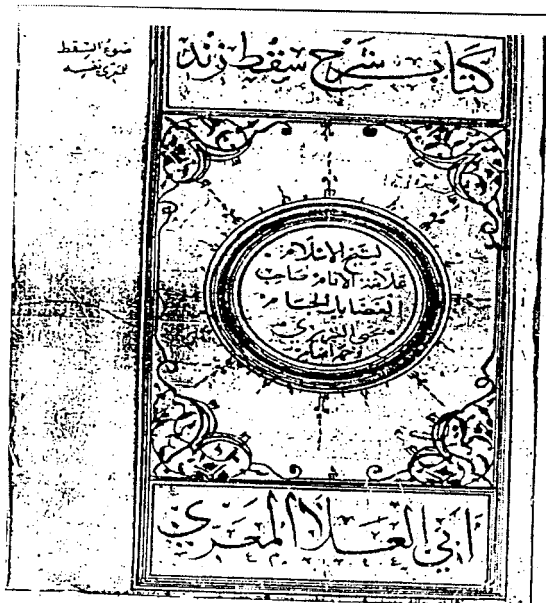 ضوء السقط
للمعري نفسه
كتاب شرح سقط زند
لشيخ الاسلام
علامة الانام صاحب
التصانيف الجسام
التبريزي
ابي العلا المعري